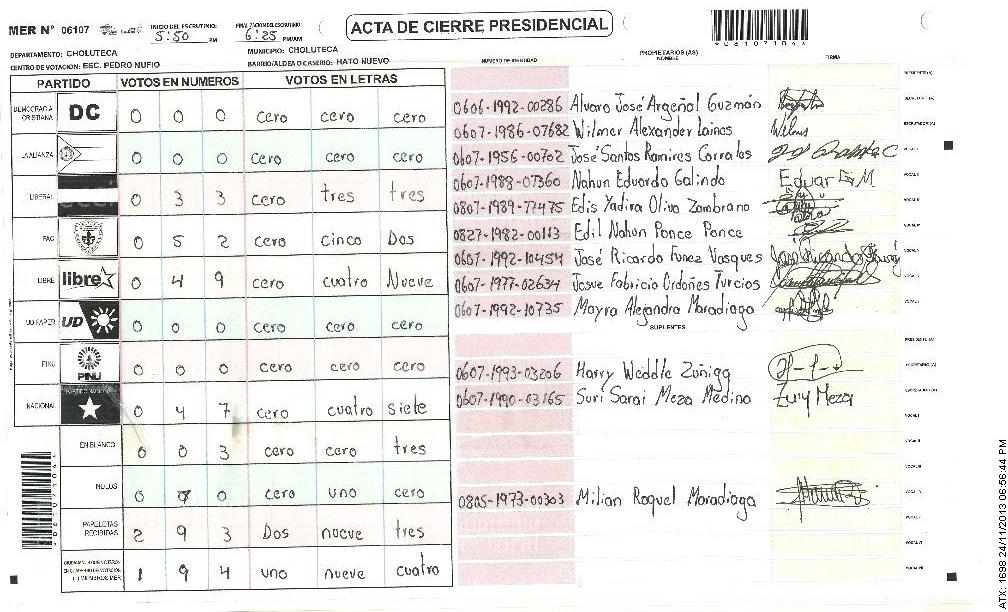 MER Nº 06107 INICIO DEL ESCRUTINIO: 5:50 PM FINALIZACION DEL ESCRUTINIO 6:25 PM/AM ACTA DE CIERRE PRESIDENCIAL
DEPARTAMENTO: CHOLUTECA MUNICIPIO: CHOLUTECA
CENTRO DE VOTACION: ESC. PEDRO NUFIO BARRIO/ALDEA O CASERIO: HATO NUEVO
NUMERO DE IDENTIDAD PROPIETARIOS (AS) NOMBRE FIRMA
PARTIDO VOTOS EN NUMEROS VOTOS EN LETRAS
DEMOCRACIA CRISTIANA DC 0 0 0 cero cero cero
LA ALIANZA 0 0 0 cero cero cero
LIBERAL 0 3 3 cero tres tres
PAC 0 5 2 cero cinco Dos
LIBRE libre 0 4 9 cero cuatro Nueve
UD FAPER UD 0 0 0 cero cero cero
PINU PINU 0 0 0 cero cero cero
NACIONAL 0 4 7 cero cuatro siete
EN BLANCO 0 0 3 cero cero tres
NULOS 0 0 cero uno cero
PAPELETAS RECIBIDAS 2 9 3 Dos nueve tres
1 9 4 uno nueve cuatro
0606-1992-00286 Alvaro José Argeñal Guzmán
0607-1986-07682 Wilmer Alexander Laines
0607-1956-00702 José Santos Ramires Corrales
0607-1988-07360 Nahun Eduardo Galindo
Edis Yadira Oliva Zambrano
0827-1982-00113 Edil Nahun Ponce Ponce
0607-1992-10454 José Ricardo Funez Vasques
0607-1977-02634 Josue Fabricio Ordoñes Turcios
0607-1992-10735 Mayra Alejandra Maradiaga
SUPLENTES
0607-1993-03206 Harry Weddle Zuñiga
0607-1990-03165 Suri Sarai Meza Medina
Milian Raquel Maradiaga
ATX: 1698 24/11/2013 06:56:44 PM